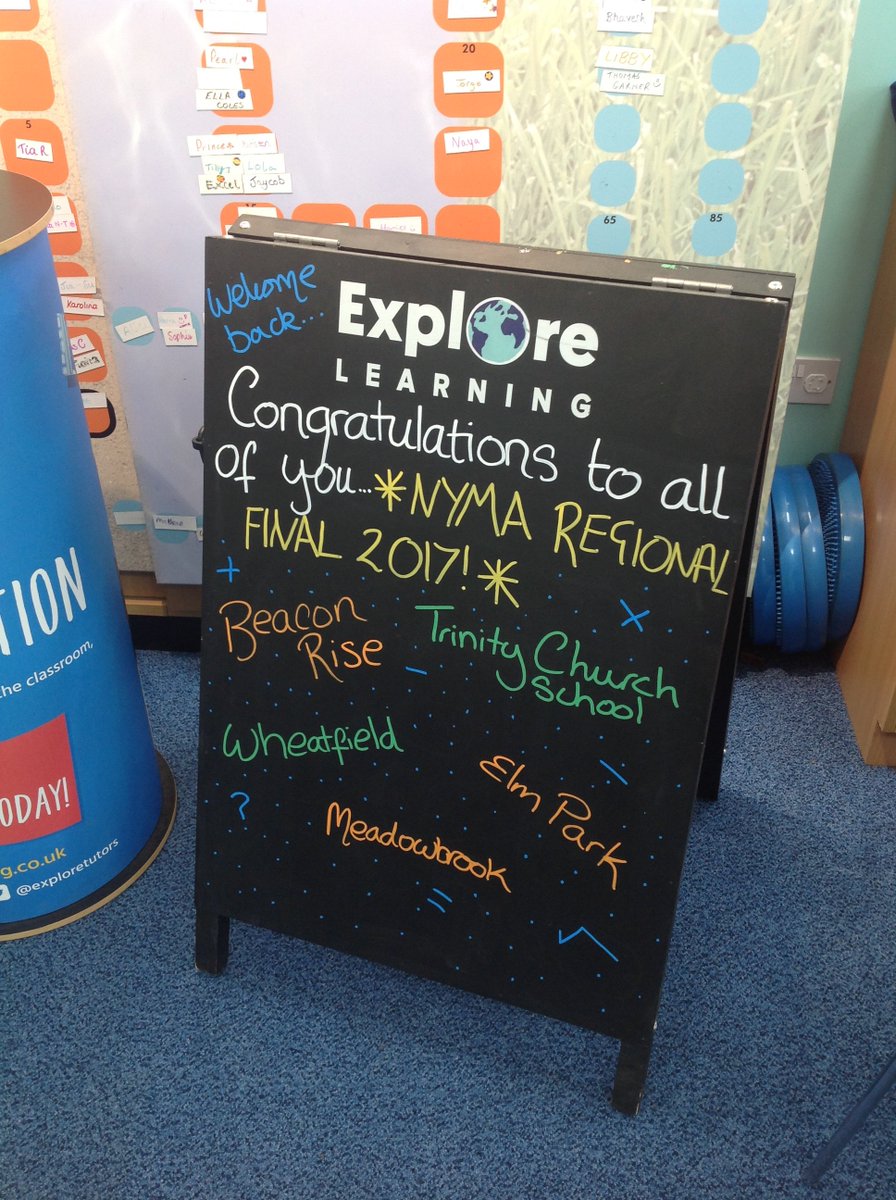 20
Bhavesh
Pearl
LIBBY
THOMAS
GARNER
ELLA
COLES
5
Tia R
Naya
Lola
Jaycob
Excel
15
65
85
Karolina
Sophie
Welcome
back...
Explore
LEARNING
Congratulations to all
of you... *NYMA REGIONAL
FINAL 2017! *
+
×
Beacon
Rise
Trinity Church
School
-
Wheatfield
\
Elm Park
?
Meadowbrook
=
TION
the classroom,
ODAY!
g.co.uk
@exploretutors